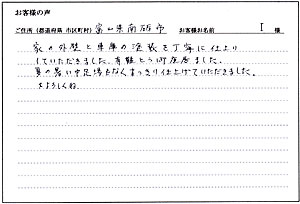 お客様の声
ご住所（都道府県 市区町村） 富山県南砺市 お客様お名前 I 様
家の外壁と車庫の塗装を丁寧に仕上り
していただきました。有難とう御座居ました。
夏の暑い中足場もなくすっきり仕上げていただきました。